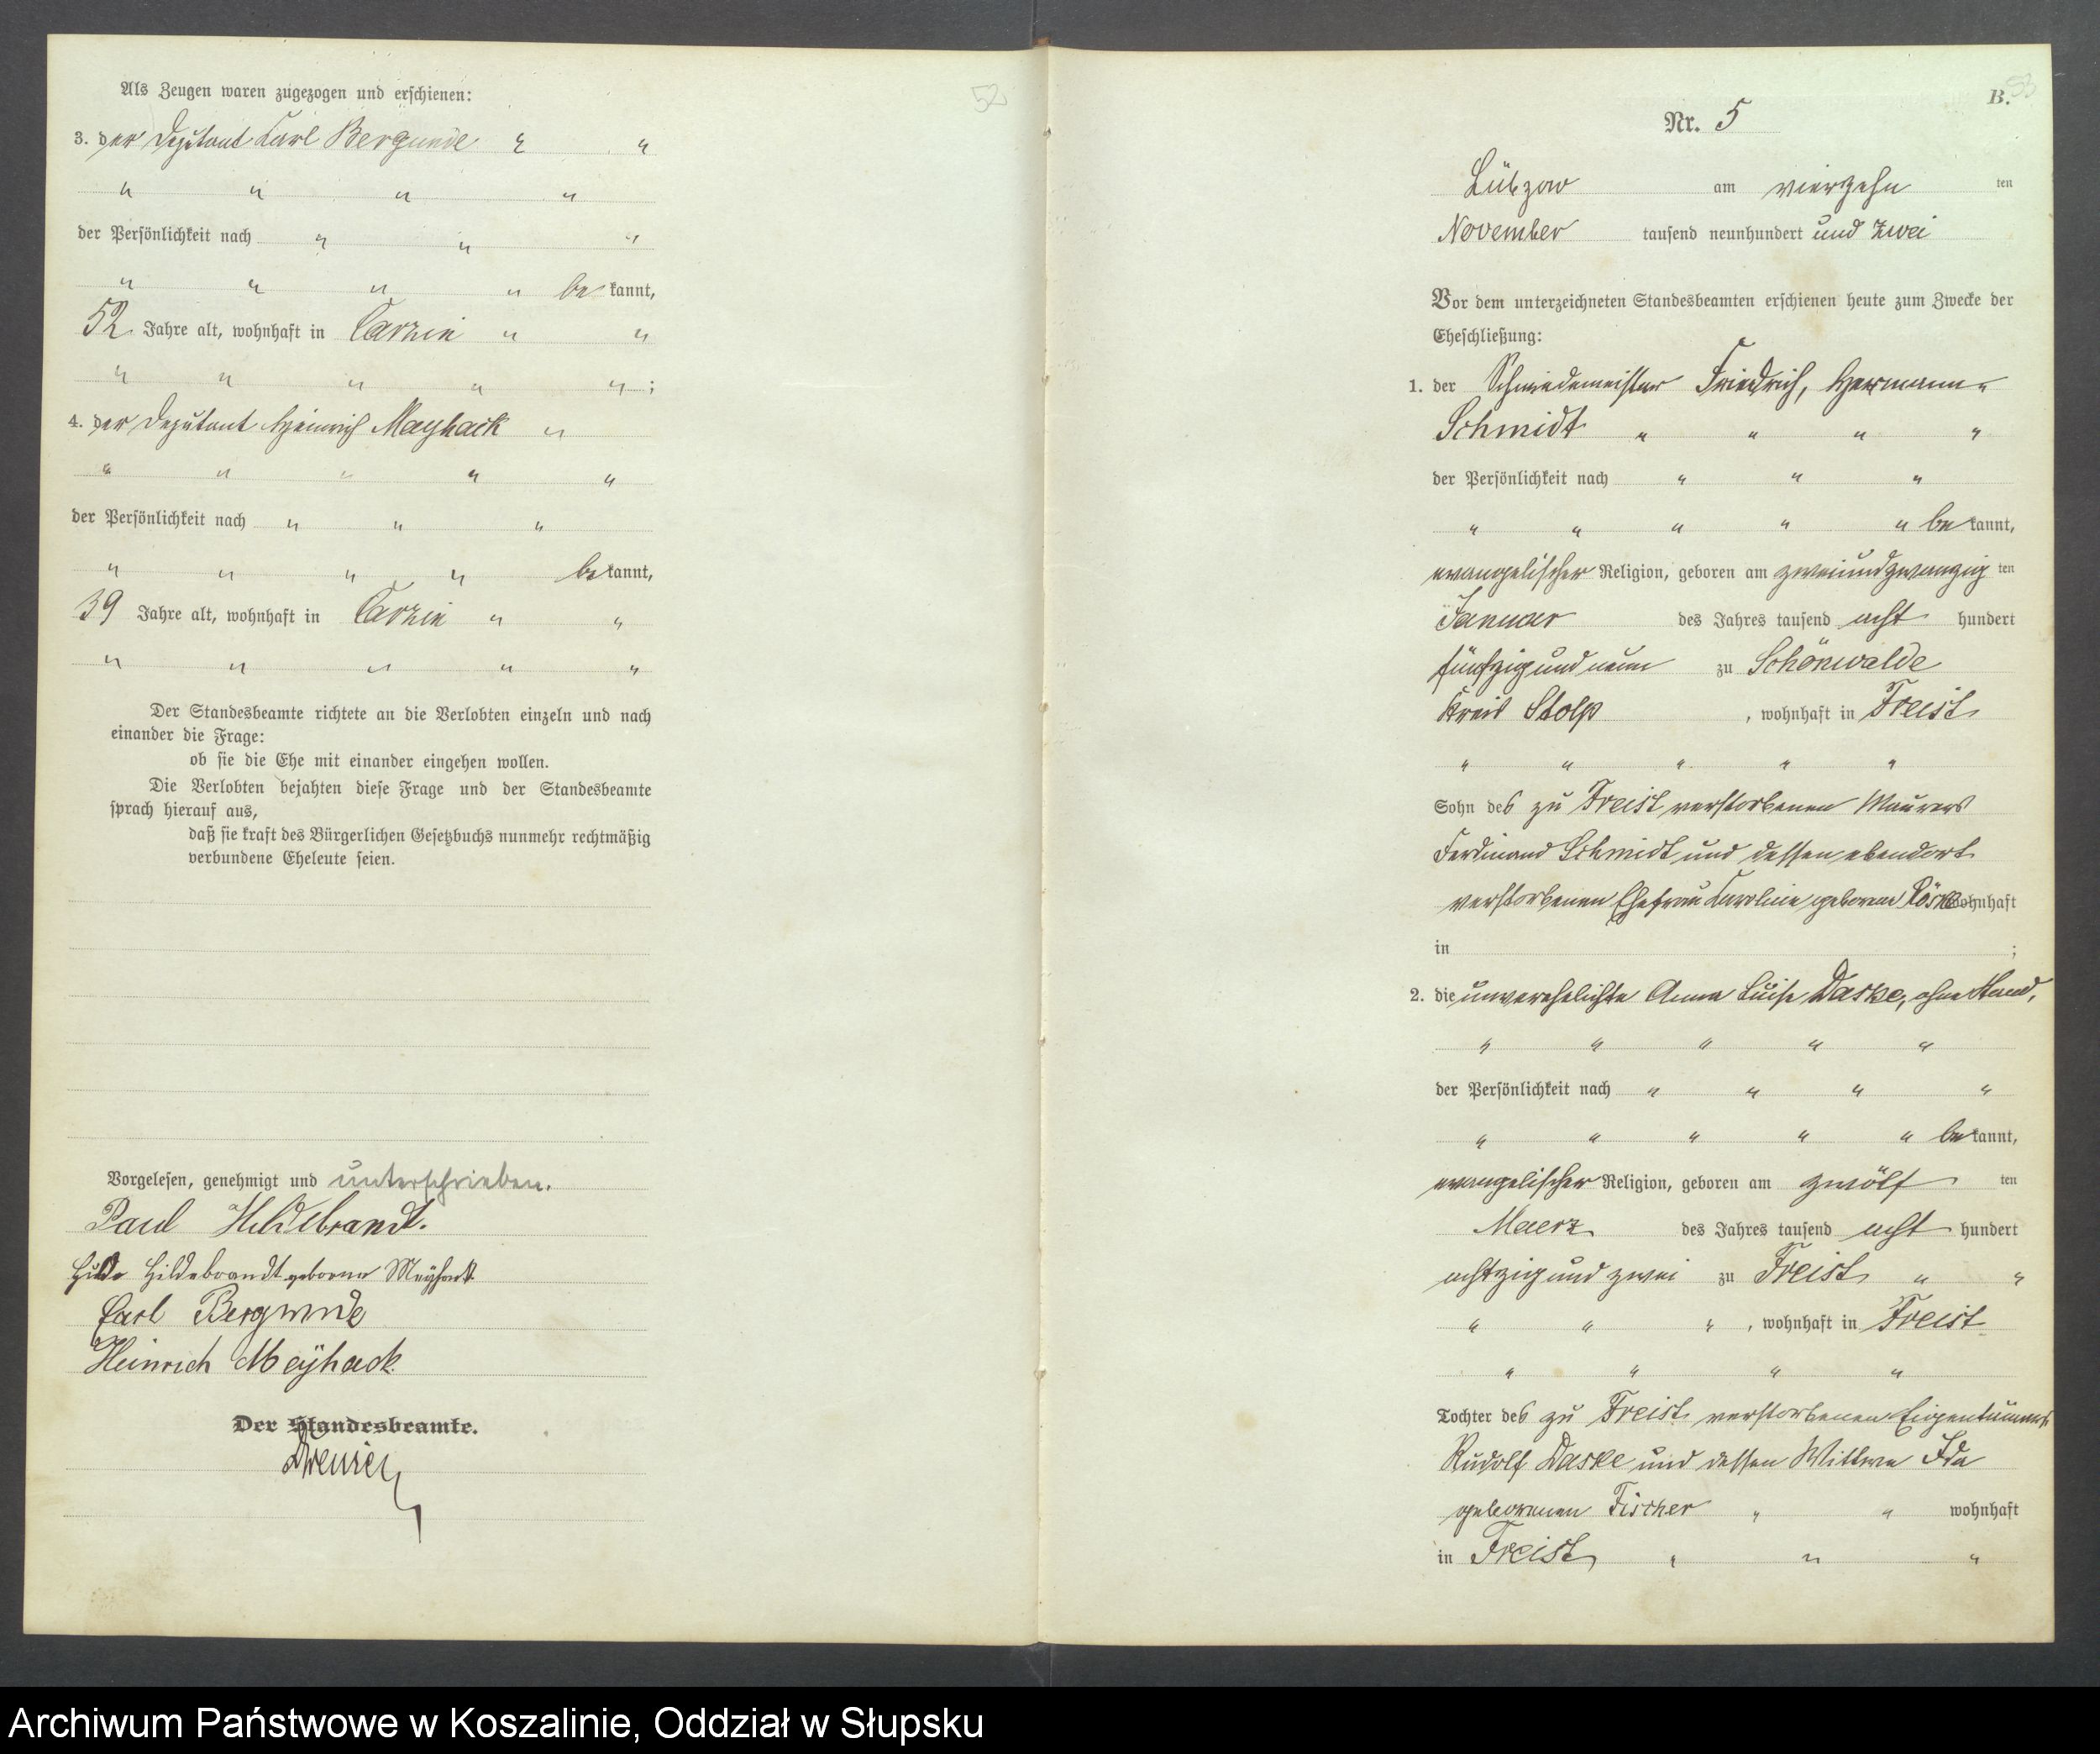 Als Zeugen waren zugezogen und erschienen:
3. der Deputant Carl Bergunde " "
" " " "
der Persönlichkeit nach " " "
" " " " bekannt,
52 Jahre alt, wohnhaft in Carzin " "
" " " " " ;
4. der Deputant Heinrich Mayhack "
" " " " "
der Persönlichkeit nach " " "
" " " " bekannt,
39 Jahre alt, wohnhaft in Carzin " "
" " " " "
Der Standesbeamte richtete an die Verlobten einzeln und nach
einander die Frage:
ob sie die Ehe mit einander eingehen wollen.
Die Verlobten bejahten diese Frage und der Standesbeamte
sprach hierauf aus,
daß sie kraft des Bürgerlichen Gesetzbuchs nunmehr rechtmäßig
verbundene Eheleute seien.
Vorgelesen, genehmigt und unterschrieben.
Paul Hildebrandt.
Hildebrandt geborene Meyhack
Carl Bergunde
Heinrich Meÿhack.
Der Standesbeamte.
52
B.
53
Nr. 5
Lübzow am vierzehn ten
November tausend neunhundert und zwei
Vor dem unterzeichneten Standesbeamten erschienen heute zum Zwecke der
Eheschließung:
1. der Schmiedemeister Friedrich, Hermann "
Schmidt " " " "
der Persönlichkeit nach " " "
" " " " " bekannt,
evangelischer Religion, geboren am zweiundzwanzig ten
Januar des Jahres tausend acht hundert
fünfzig und neun zu Schönwalde
Kreis Stolp , wohnhaft in Freist
" " " " "
Sohn des zu Freist verstorbenen Maurers
Ferdinand Schmidt und dessen ebendort
verstorbenen Ehefrau Karoline geborene wohnhaft
in ;
2. die unverehelichte Anna Luise Daske, ohne Stand,
" " " " "
der Persönlichkeit nach " " " "
" " " " " bekannt,
evangelischer Religion, geboren am zwölf ten
Maerz des Jahres tausend acht hundert
achtzig und zwei zu Freist " "
" " " , wohnhaft in Freist
" " " "
Tochter des zu Freist verstorbenen Eigentümers
Rudolf Daske und dessen Wittwe Ida
geborenen Fischer " " wohnhaft
in Freist " " "
Archiwum Państwowe w Koszalinie, Oddział w Słupsku